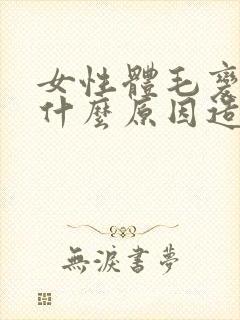 女性體毛
什麼原因造
無淚書夢